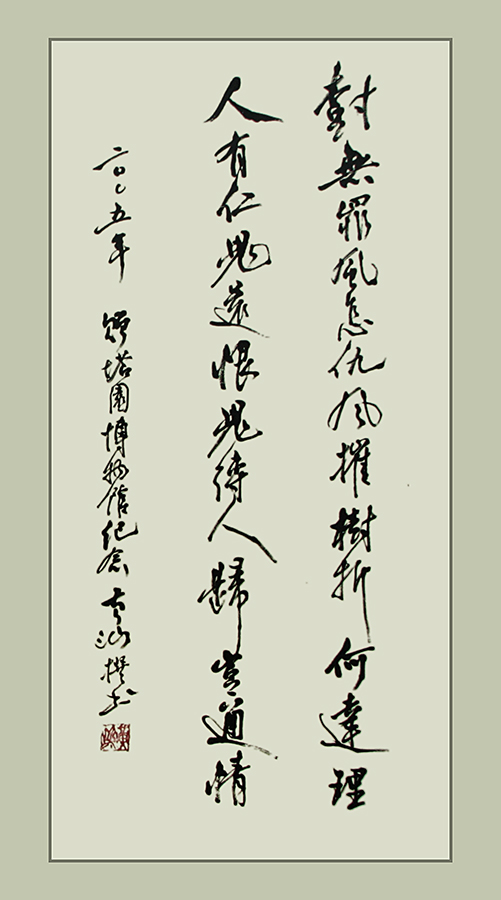 對無罪風怎仇風摧樹折何達理
人有仁鬼還恨鬼待人歸豈通情
二〇〇五年 贈塔園博物館紀念 撰书